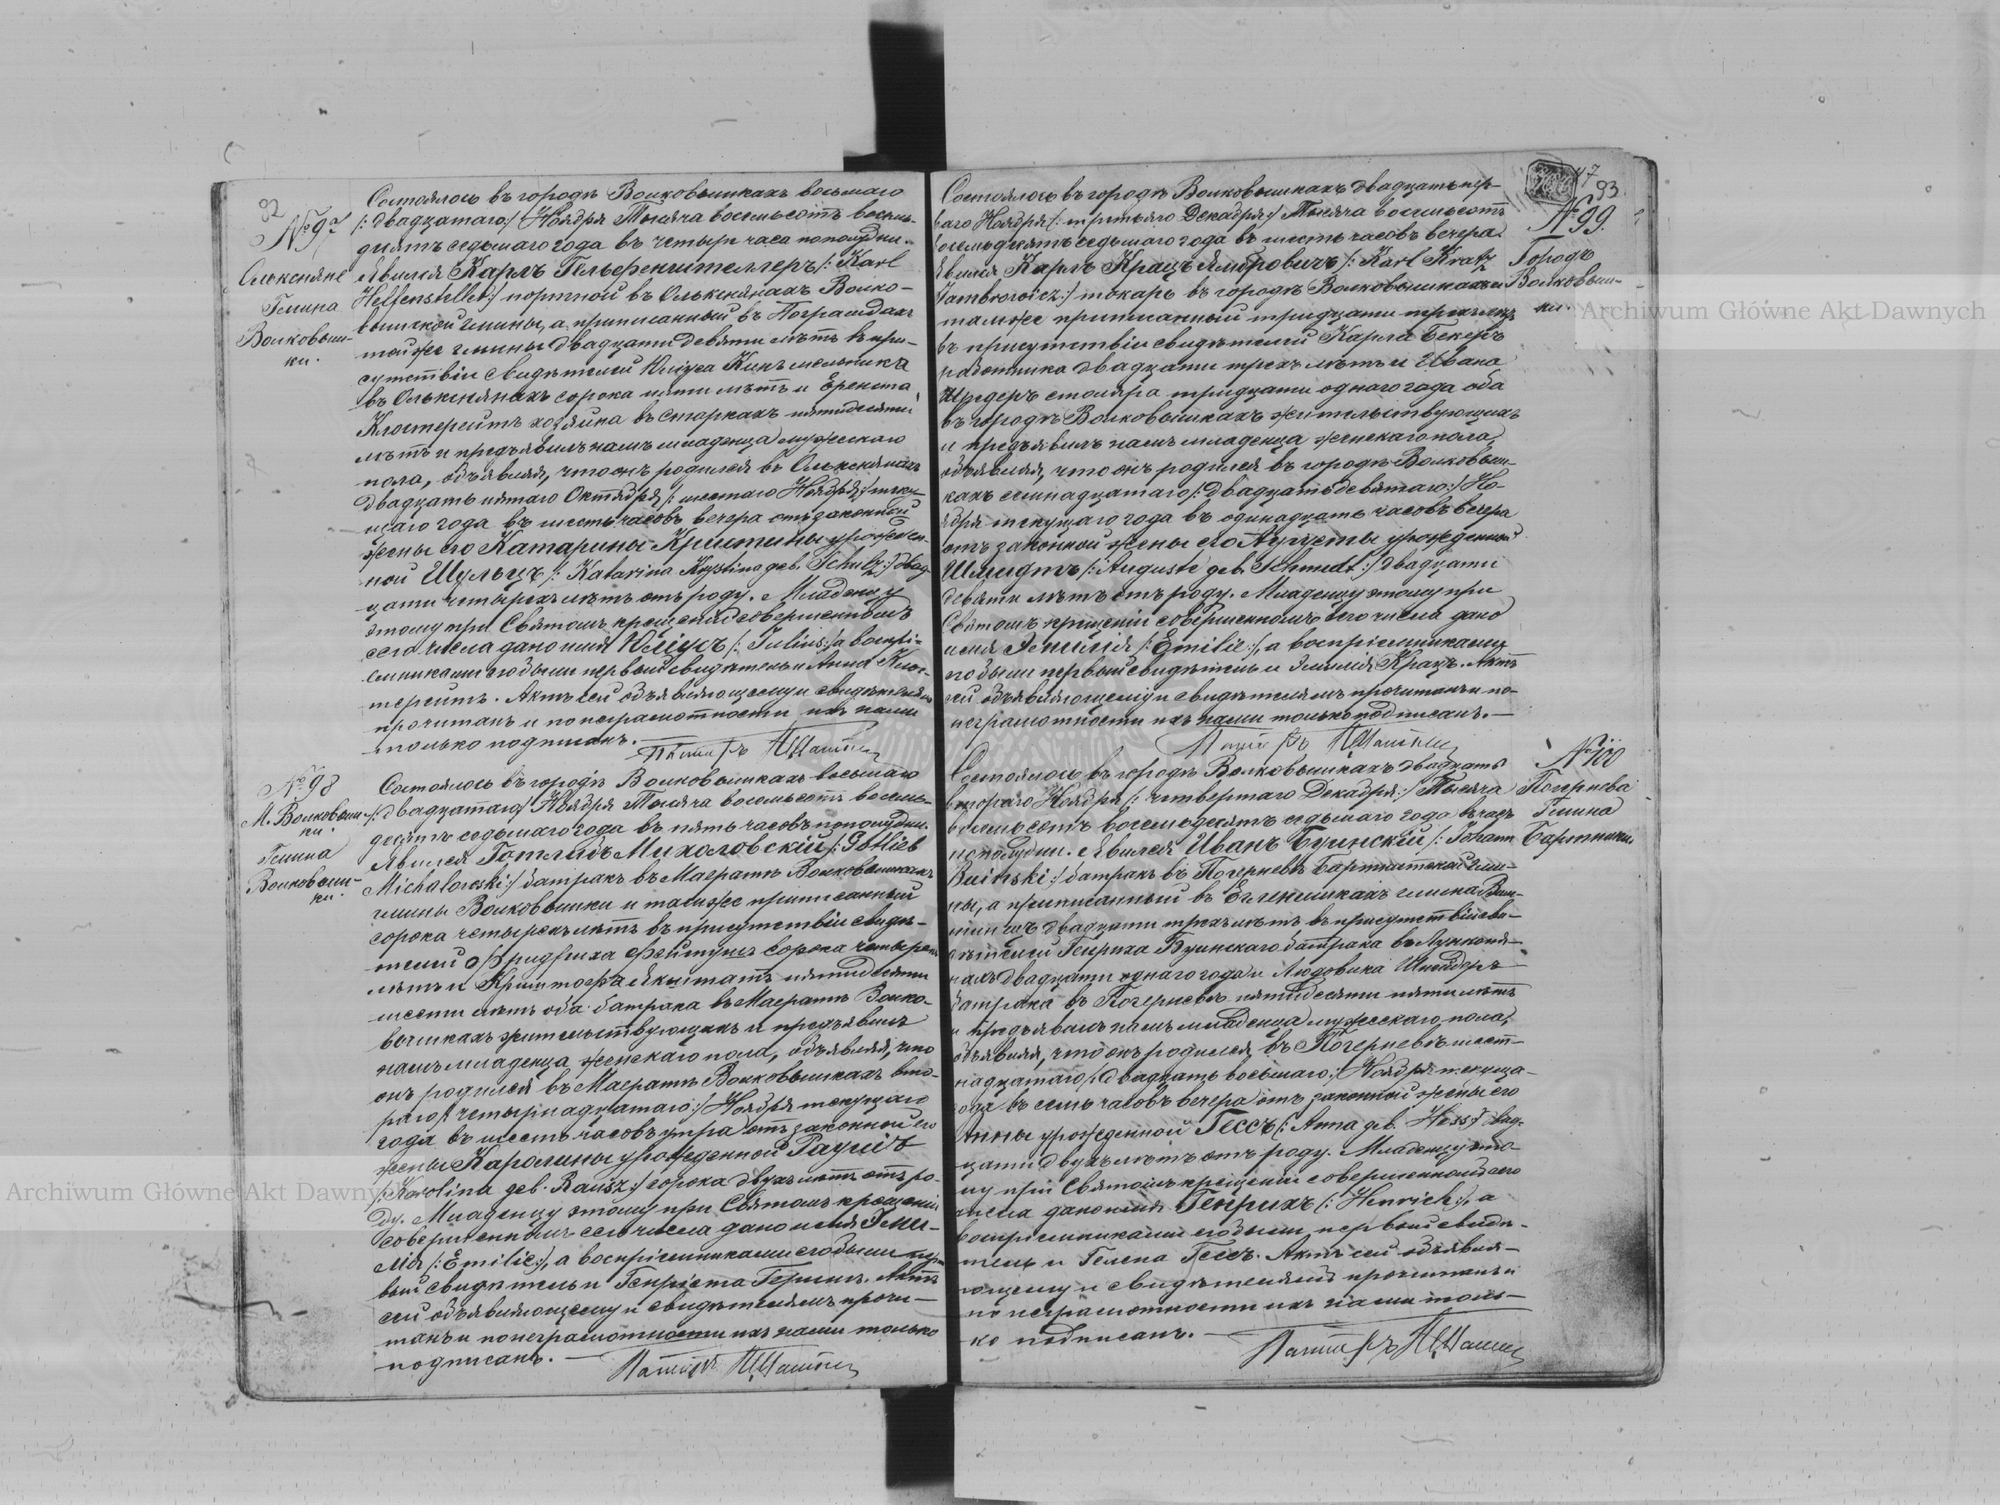 92
№ 97
Олькснянe
Гмина
Волковыш-
ки.
Состоялось въ городѣ Волковышкахъ восьмаго
/: двадцатаго :/ Ноября Тысяча восемьсотъ восемь-
десятъ седьмаго года въ четыре часа пополудни.
Явился Карлъ Гельфенштеллеръ /: Karl
Helfensteller :/ портной въ Олькснянахъ Волко-
вышской гмины, а приписанный въ
той же гмины двадцати девяти лѣтъ въ при-
сутствіи свидѣтелей Юліуса Кинъ мельника
въ Олькснянахъ сорока пяти лѣтъ и Ернста
Клостерейтъ хозяина въ Старкахъ пятидесяти
лѣтъ и предъявилъ намъ младенца мужескаго
пола, объявляя, что онъ родился въ Олькснянахъ
двадцать пятаго Октября /: шестаго Ноября :/ теку-
щаго года въ шесть часовъ вечера отъ законной
жены его Катарины Кристины урожден-
ной Шульцъ /: Katarina Krystina дев. Schulz :/ двад-
цати четырехъ лѣтъ отъ роду. Младенцу
этому при Святомъ крещеніи совершенномъ
сего числа дано имя Юліусъ /: Julius :/ а воспрі-
емниками его были первый свидѣтель и Анна Клос-
терейтъ. Актъ сей объявляющему и свидѣтелямъ
прочитанъ и по неграмотности ихъ нами
только подписанъ.
Пасторъ
№ 98
М. Волковыш-
ки.
Гмина
Волковыш-
ки.
Состоялось въ городѣ Волковышкахъ восьмаго
/: двадцатаго :/ Ноября Тысяча восемьсотъ восемь-
десятъ седьмаго года въ пять часовъ пополудни.
Явился Готлибъ Михаловскій /: Gotlieb
Michalowski :/ батракъ въ Маератѣ Волковышкахъ
гмины Волковышки и тамже приписанный
сорока четырехъ лѣтъ въ присутствіи свидѣ-
телей Фридриха сорока четырехъ
лѣтъ и Криштофа пятидесяти
шести лѣтъ оба батрака въ Маератѣ Волко-
вышкахъ жительствующихъ и предъявилъ
намъ младенца женскаго пола, объявляя, что
онъ родился въ Маератѣ Волковышкахъ вто-
раго /: четырнадцатаго :/ Ноября текущаго
года въ шесть часовъ утра отъ законной его
жены Каролины урожденной Раушъ
/: Karolina дев. Rausz :/ сорока двухъ лѣтъ отъ ро-
ду. Младенцу этому при Святомъ крещеніи
совершенномъ сего числа дано имя Эми-
лія /: Emilie :/, а воспріемниками его были пер-
вый свидѣтель и Генріета Геринъ. Актъ
сей объявляющему и свидѣтелямъ прочи-
танъ и по неграмотности ихъ нами только
подписанъ.
Пасторъ
47
93
№ 99.
Городъ
Волковыш-
ки.
Состоялось въ городѣ Волковышкахъ двадцать пер-
ваго Ноября /: третьяго Декабря :/ Тысяча восемьсотъ
восемьдесятъ седьмаго года въ шесть часовъ вечера.
Явился Карлъ Крацъ Ямбровичъ /: Karl Kratz
Jambrowicz :/ токарь въ городѣ Волковышкахъ и
тамже приписанный тридцати трехъ лѣтъ
въ присутствіи свидѣтелей Карла Бекеръ
работника двадцати трехъ лѣтъ и Ивана
Шредеръ столяра тридцати одного года оба
въ городѣ Волковышкахъ жительствующихъ
и предъявилъ намъ младенца женскаго пола,
объявляя, что онъ родился въ городѣ Волковыш-
кахъ семнадцатаго /: двадцать девятаго :/ Но-
ября текущаго года въ одинадцать часовъ вечера
отъ законной жены его Аугусты урожденной
Шмидтъ /: Auguste дев. Schmidt :/ двадцати
девяти лѣтъ отъ роду. Младенцу этому при
Святомъ крещеніи совершенномъ сего числа дано
имя Эмилія /: Emilie :/, а воспріемниками
его были первый свидѣтель и Эмилія Крацъ. Актъ
сей объявляющему и свидѣтелямъ прочитанъ и по
неграмотности ихъ нами только подписанъ.
Пасторъ
№ 100
Погернева
Гмина
Бартники.
Состоялось въ городѣ Волковышкахъ двадцать
втораго Ноября /: четвертаго Декабря :/ Тысяча
восемьсотъ восемьдесятъ седьмаго года въ часъ
пополудни. Явился Иванъ Буинскій /: Johann
Buinski :/ батракъ въ Погерневѣ Бартнитской гми-
ны, а приписанный въ гмина
двадцати трехъ лѣтъ въ присутствіи сви-
дѣтелей Генриха Буинскаго батрака въ
нахъ двадцати одного года и Людовика Шнейдеръ
батрака въ Погерневѣ пятидесяти пяти лѣтъ
и предъявилъ намъ младенца мужескаго пола,
объявляя, что онъ родился въ Погерневѣ шест-
надцатаго /: двадцать восьмаго :/ Ноября текуща-
го года въ семь часовъ вечера отъ законной жены его
Анны урожденной Гессъ /: Anna дев. Hess :/ двад-
цати двухъ лѣтъ отъ роду. Младенцу это-
му при Святомъ крещеніи совершенномъ сего
числа дано имя Генрихъ /: Henrich :/, а
воспріемниками его были первый свидѣ-
тель и Гелена Гессъ. Актъ сей объявля-
ющему и свидѣтелямъ прочитанъ и
по неграмотности ихъ нами толь-
ко подписанъ.
Пасторъ
Archiwum Główne Akt Dawnych
Archiwum Główne Akt Dawnych